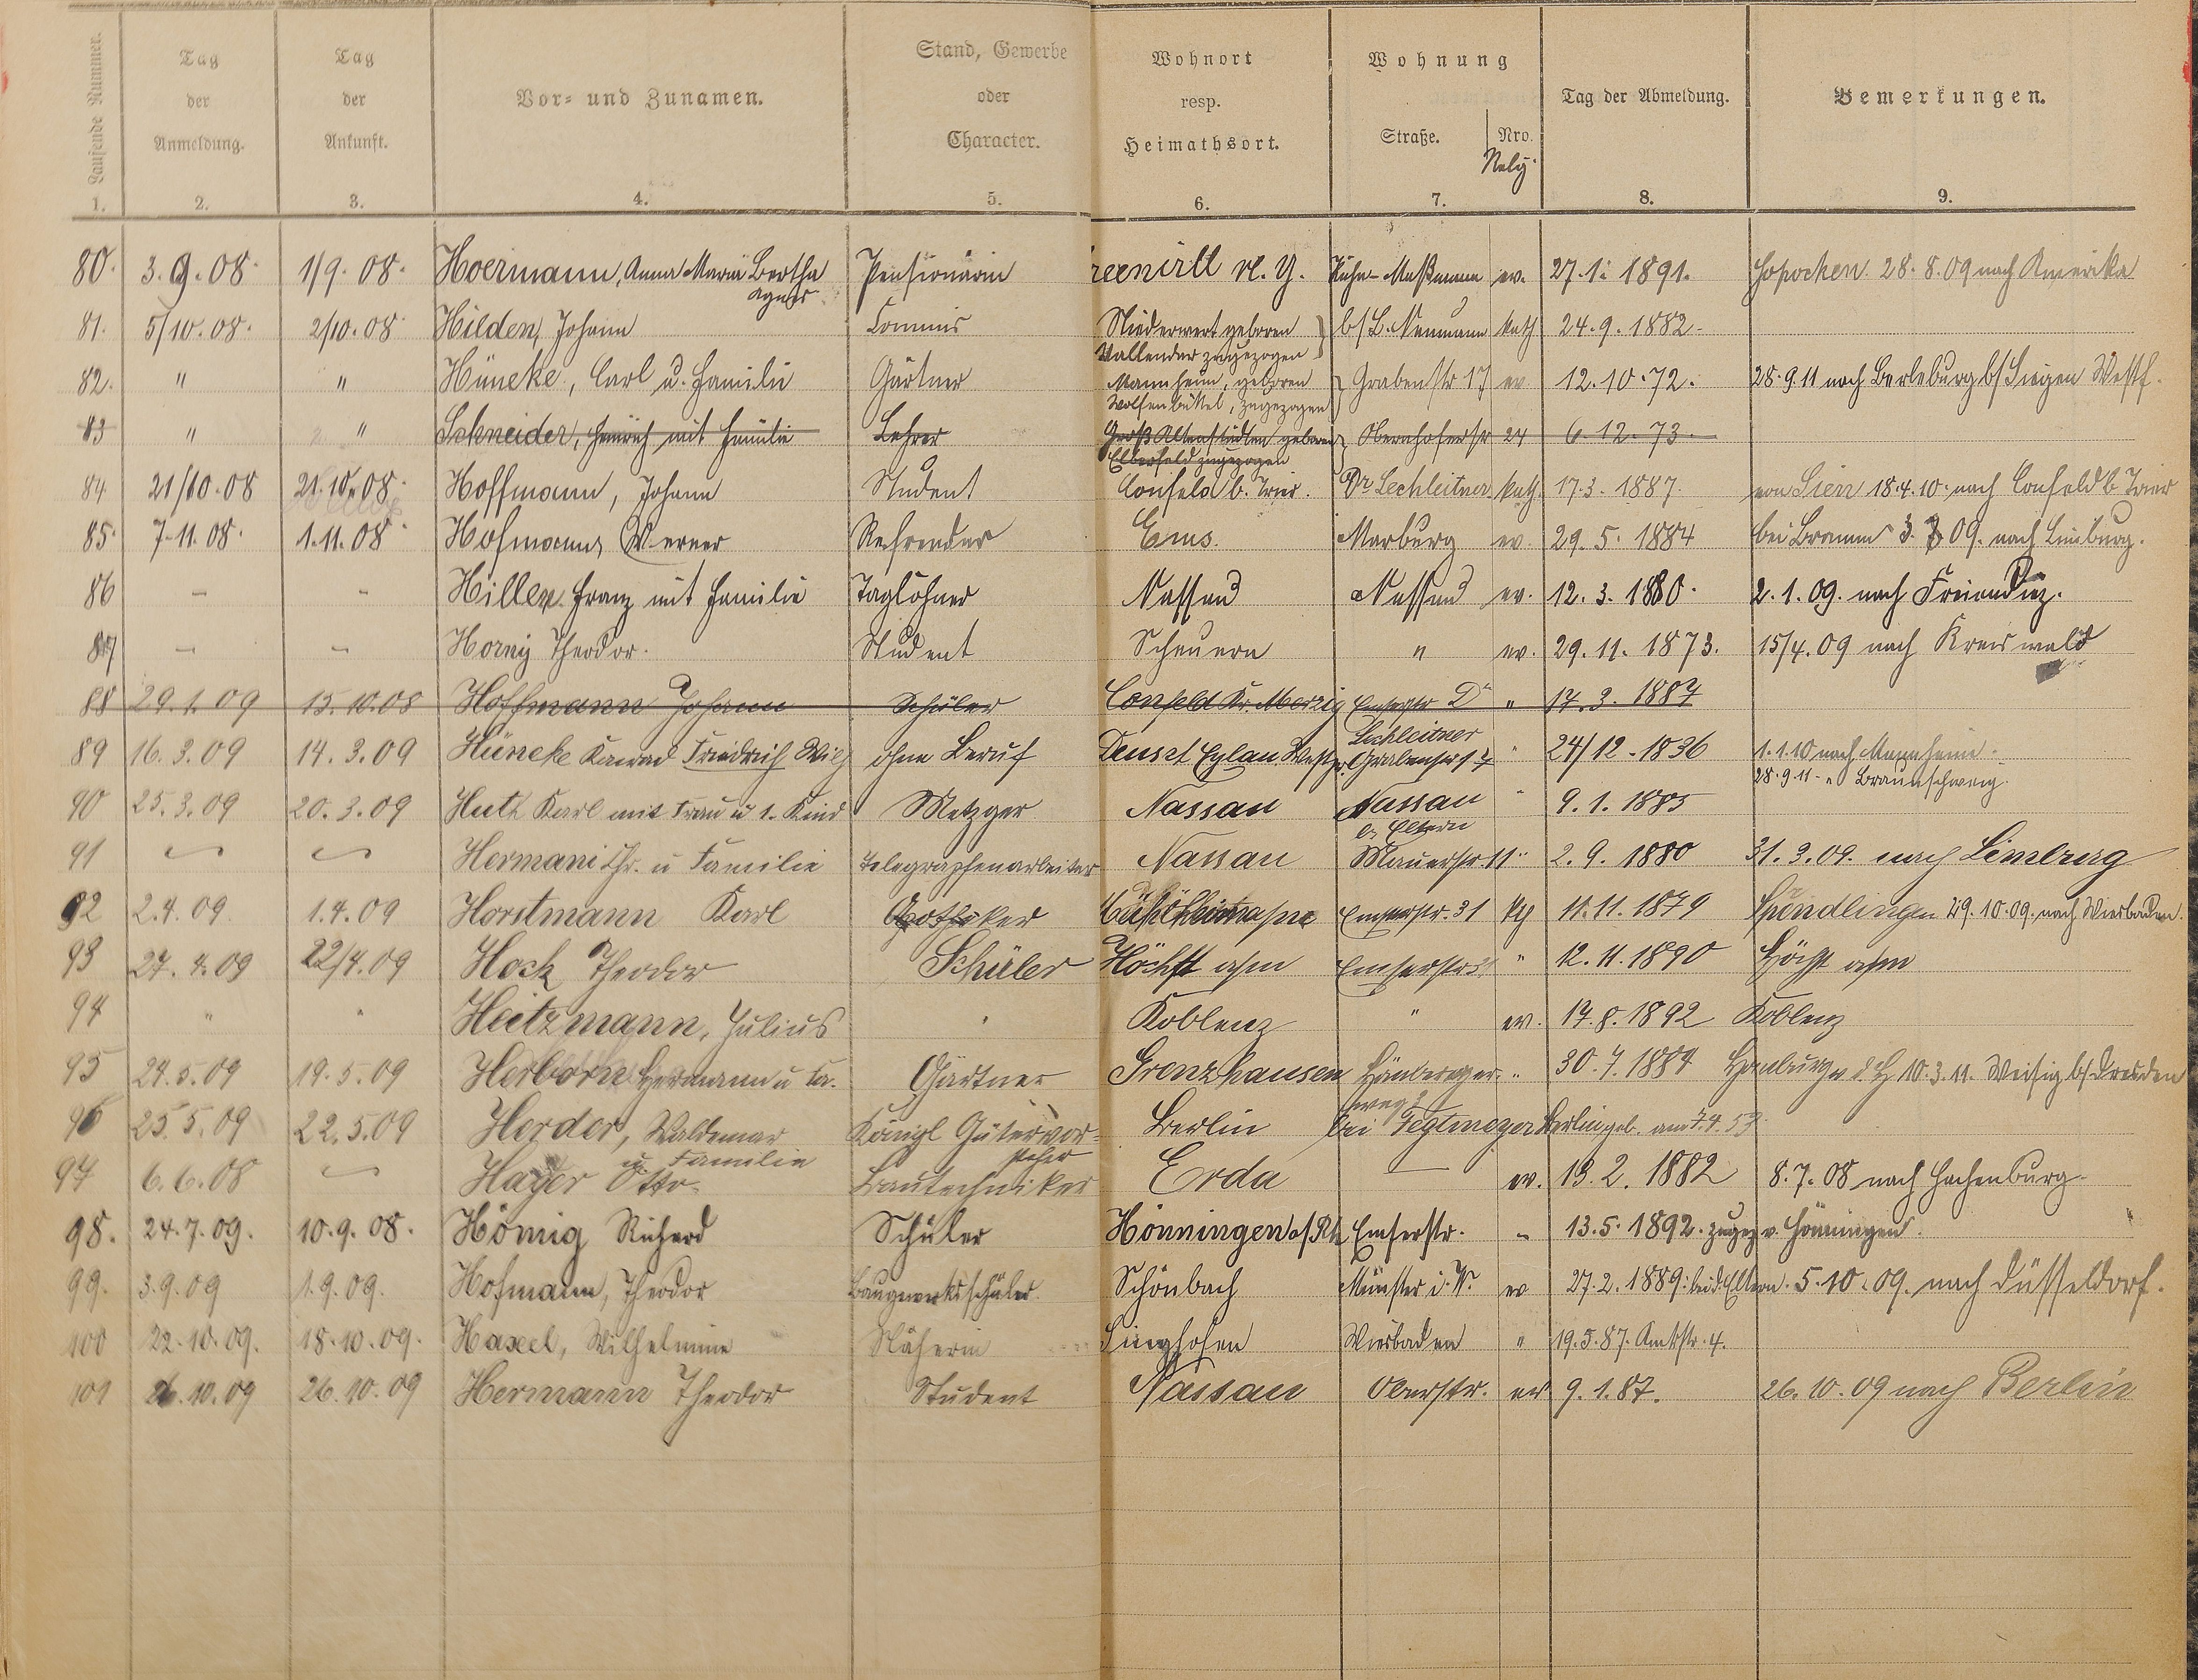 Laufende Nummer.
Tag der Anmeldung.
Tag der Ankunft.
Vor- und Zunamen.
Stand, Gewerbe oder Character.
Wohnort resp. Heimathsort.
Wohnung
Straße. Nro.
Relig.
Tag der Abmeldung.
Bemerkungen.
1. 2. 3. 4. 5. 6. 7. 8. 9.
80. 3.9.08. 1/9.08. Hoermann, Anna Maria Bertha Agnes Pensionärin N.Y. ev. 27.1.1891. 28.8.09 nach Amerika
81. 5/10.08. 2/10.08 Hilden, Johann Commis Niederwert geboren Vallendar zugezogen b/L. Neumann kath 24.9.1882.
82. " " Hüneke, Carl u. Familie Gärtner Mannheim, geboren Wolfenbüttel, zugezogen Grabenstr 17 ev 12.10.72. 28.9.11 nach Berleburg b/Siegen Westf.
83 " " Schneider, Heinrich mit Familie Lehrer Groß Altenstädten geboren Elberfeld zugezogen Obernhoferstr 24 6.12.73.
84 21/10.08 21.10.08. Hoffmann, Johann Student Confeld b. Trier. Dr Lechleitner kath. 17.3.1887. von Sien 18.4.10. nach Confeld b Trier
85. 7.11.08. 1.11.08. Hofmann, Werner Refrendar Ems. Marburg ev. 29.5.1884 bei 09. nach Limburg.
86 - - Hiller Franz mit Familie Taglöhner Nassau Nassau ev. 12.3.1880. 2.1.09. nach Freiendiez.
87 - - Horny Theodor. Student Scheuern " ev. 29.11.1873. 15/4.09 nach
88 29.1.09 15.10.08 Hoffmann Johann Schüler Confeld Kr. Merzig Emserstr Dr Lechleitner " 17.3.1887
89 16.3.09 14.3.09 Hüneke Konrad Friedrich Wilh ohne Beruf Deutsch Eylau Westpr. Grabenstr 17 " 24/12.1836 1.1.10 nach Mannheim.
28.9.11 - " Braunschweig.
90 25.3.09 20.3.09 Huth Karl mit Frau u 1. Kind Metzger Nassau Nassau b. Eltern " 9.1.1885
91 Hermani Chr. u Familie Telegraphenarbeiter Nassau Mauerstr. 11 " 2.9.1880 31.3.09. nach Limburg
92 2.4.09. 1.4.09 Horstmann Karl Apotheker Emserstr. 31 11.11.1879 29.10.09. nach Wiesbaden.
93 27.4.09 22/4.09 Hock Theodor Schüler Höchst a/m Emserstr " 12.11.1890 Höchst a/m
94 " " Heitzmann, Julius " Koblenz " ev. 17.8.1892 Koblenz
95 24.5.09 19.5.09 Herborn Hermann u Fa. Gärtner Grenzhausen " 30.7.1884 10.3.11. Weisig b/ Dresden
96 25.5.09 22.5.09 Herder, Waldemar u. Familie Königl Gütervorsteher Berlin bei Tegtmeyer Berlin geb. am 7.4.53
97 6.6.08 Hager Otto. Bautechniker Erda — ev. 13.2.1882 8.7.08 nach Hachenburg.
98. 24.7.09. 10.9.08. Hömig Richard Schüler Hönningen a/Rh Emserstr. " 13.5.1892. zugez v. Hönningen.
99. 3.9.09 1.9.09. Hofmann, Theodor Baugewerksschüler. Schönbach Münster i. W. ev 27.2.1889. bei d. Eltern. 5.10.09. nach Düsseldorf.
100 22.10.09. 18.10.09. Haxel, Wilhelmine Näherin Singhofen Wiesbaden " 19.5.87. Amtstr. 4.
101 26.10.09 26.10.09 Hermann Theodor Student Nassau Oberstr. ev 9.1.87. 26.10.09 nach Berlin